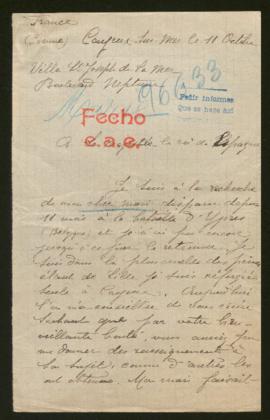 France
(Somme) Cayeux sur Mer le 11 Octobre
Villa St Joseph de la Mer
Boulevard Neptune
33
Pedir informes
Que se haga aquí
Fecho
e.a.c.
A Sa Majesté le roi de Espagne
Je suis à la recherche
de mon cher mari disparu depuis
11 mois à la bataille d'Ypres
(Belgique) et je n'ai pu encore
jusqu'à ce jour le retrouver. Je
suis dans la plus des peines
étant de Lille je suis réfugiée
seule à Cayeux. Aujourd'hui
l'on m'a conseillée de vous écrire
sachant que par votre bien-
veillante bonté, vous auriez pu
me donner des renseignements à
ce sujet, comme d'autres les
ont obtenus. Mon mari faisait